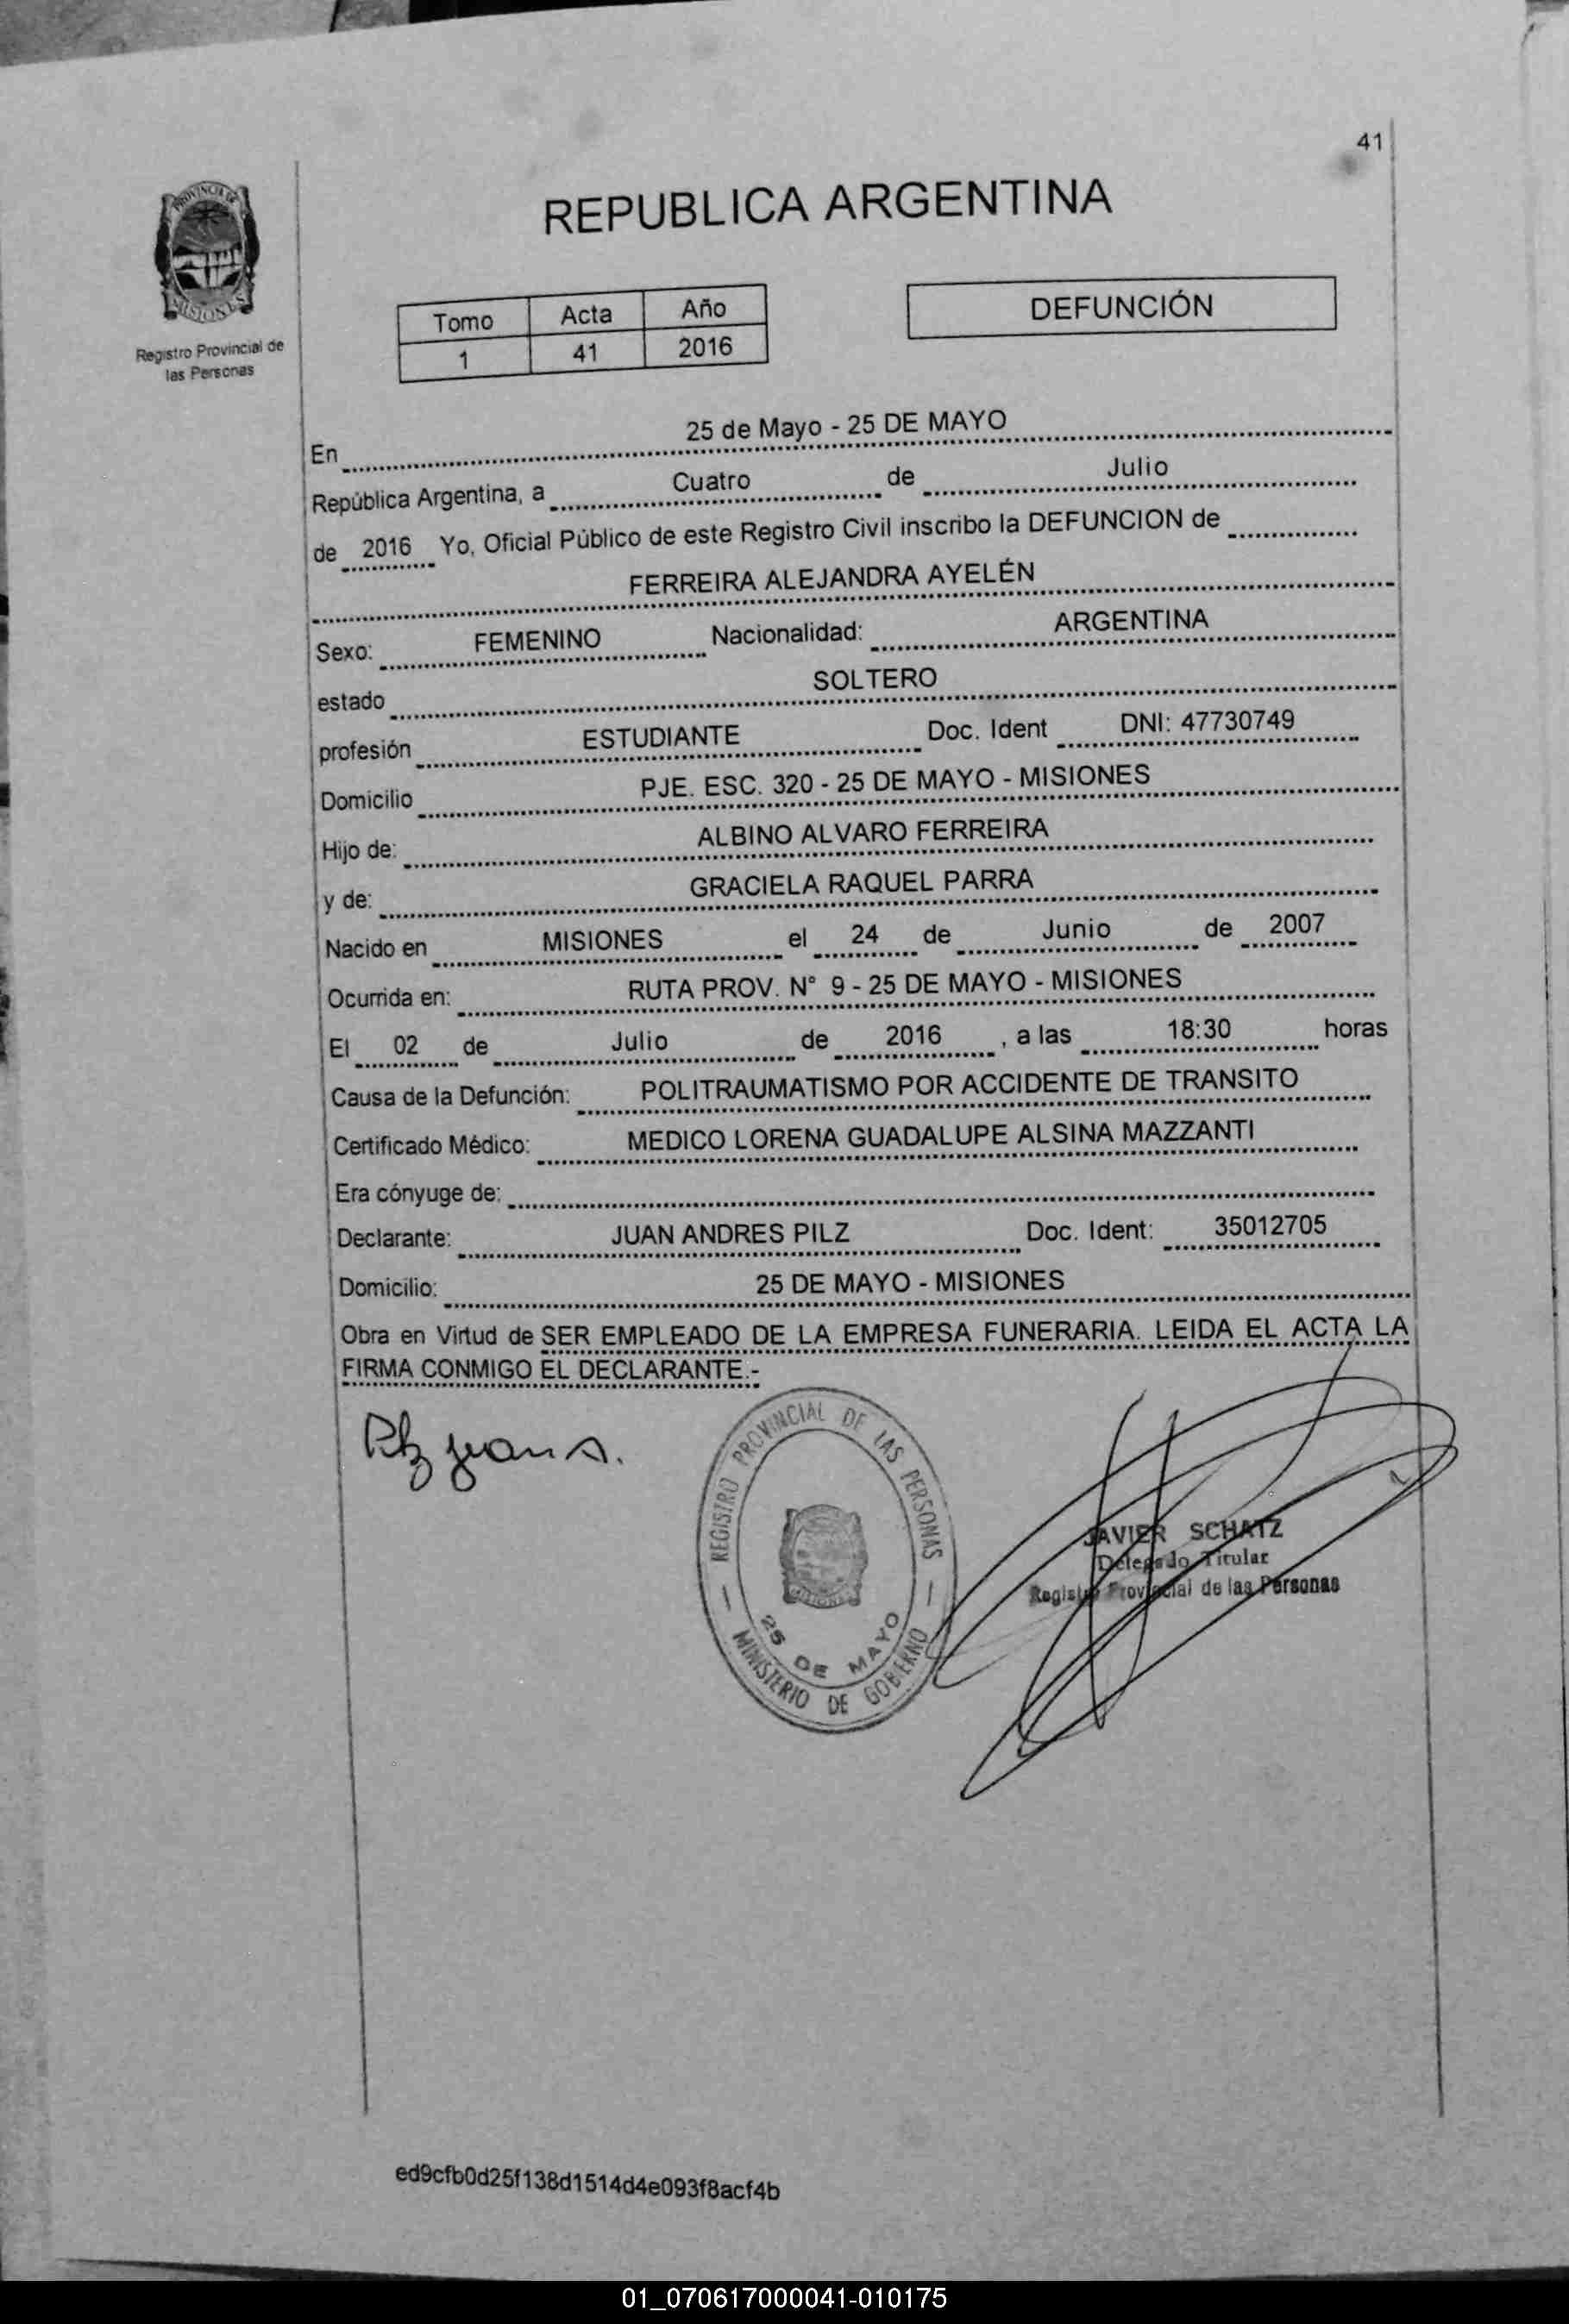 41
PROVINCIA DE
MISIONES
Registro Provincial de
las Personas
REPUBLICA ARGENTINA
Tomo Acta Año
1 41 2016
DEFUNCIÓN
En 25 de Mayo - 25 DE MAYO
República Argentina, a Cuatro de Julio
de 2016 Yo, Oficial Público de este Registro Civil inscribo la DEFUNCION de
FERREIRA ALEJANDRA AYELÉN
Sexo: FEMENINO Nacionalidad: ARGENTINA
estado SOLTERO
profesión ESTUDIANTE Doc. Ident DNI: 47730749
Domicilio PJE. ESC. 320 - 25 DE MAYO - MISIONES
Hijo de: ALBINO ALVARO FERREIRA
y de: GRACIELA RAQUEL PARRA
Nacido en MISIONES el 24 de Junio de 2007
Ocurrida en: RUTA PROV. N° 9 - 25 DE MAYO - MISIONES
El 02 de Julio de 2016 , a las 18:30 horas
Causa de la Defunción: POLITRAUMATISMO POR ACCIDENTE DE TRANSITO
Certificado Médico: MEDICO LORENA GUADALUPE ALSINA MAZZANTI
Era cónyuge de:
Declarante: JUAN ANDRES PILZ Doc. Ident: 35012705
Domicilio: 25 DE MAYO - MISIONES
Obra en Virtud de SER EMPLEADO DE LA EMPRESA FUNERARIA. LEIDA EL ACTA LA
FIRMA CONMIGO EL DECLARANTE.-
Pilz Juan A.
REGISTRO PROVINCIAL DE LAS PERSONAS
25 DE MAYO
MINISTERIO DE GOBIERNO
JAVIER SCHATZ
Delegado Titular
Registro Provincial de las Personas
ed9cfb0d25f138d1514d4e093f8acf4b
01_070617000041-010175